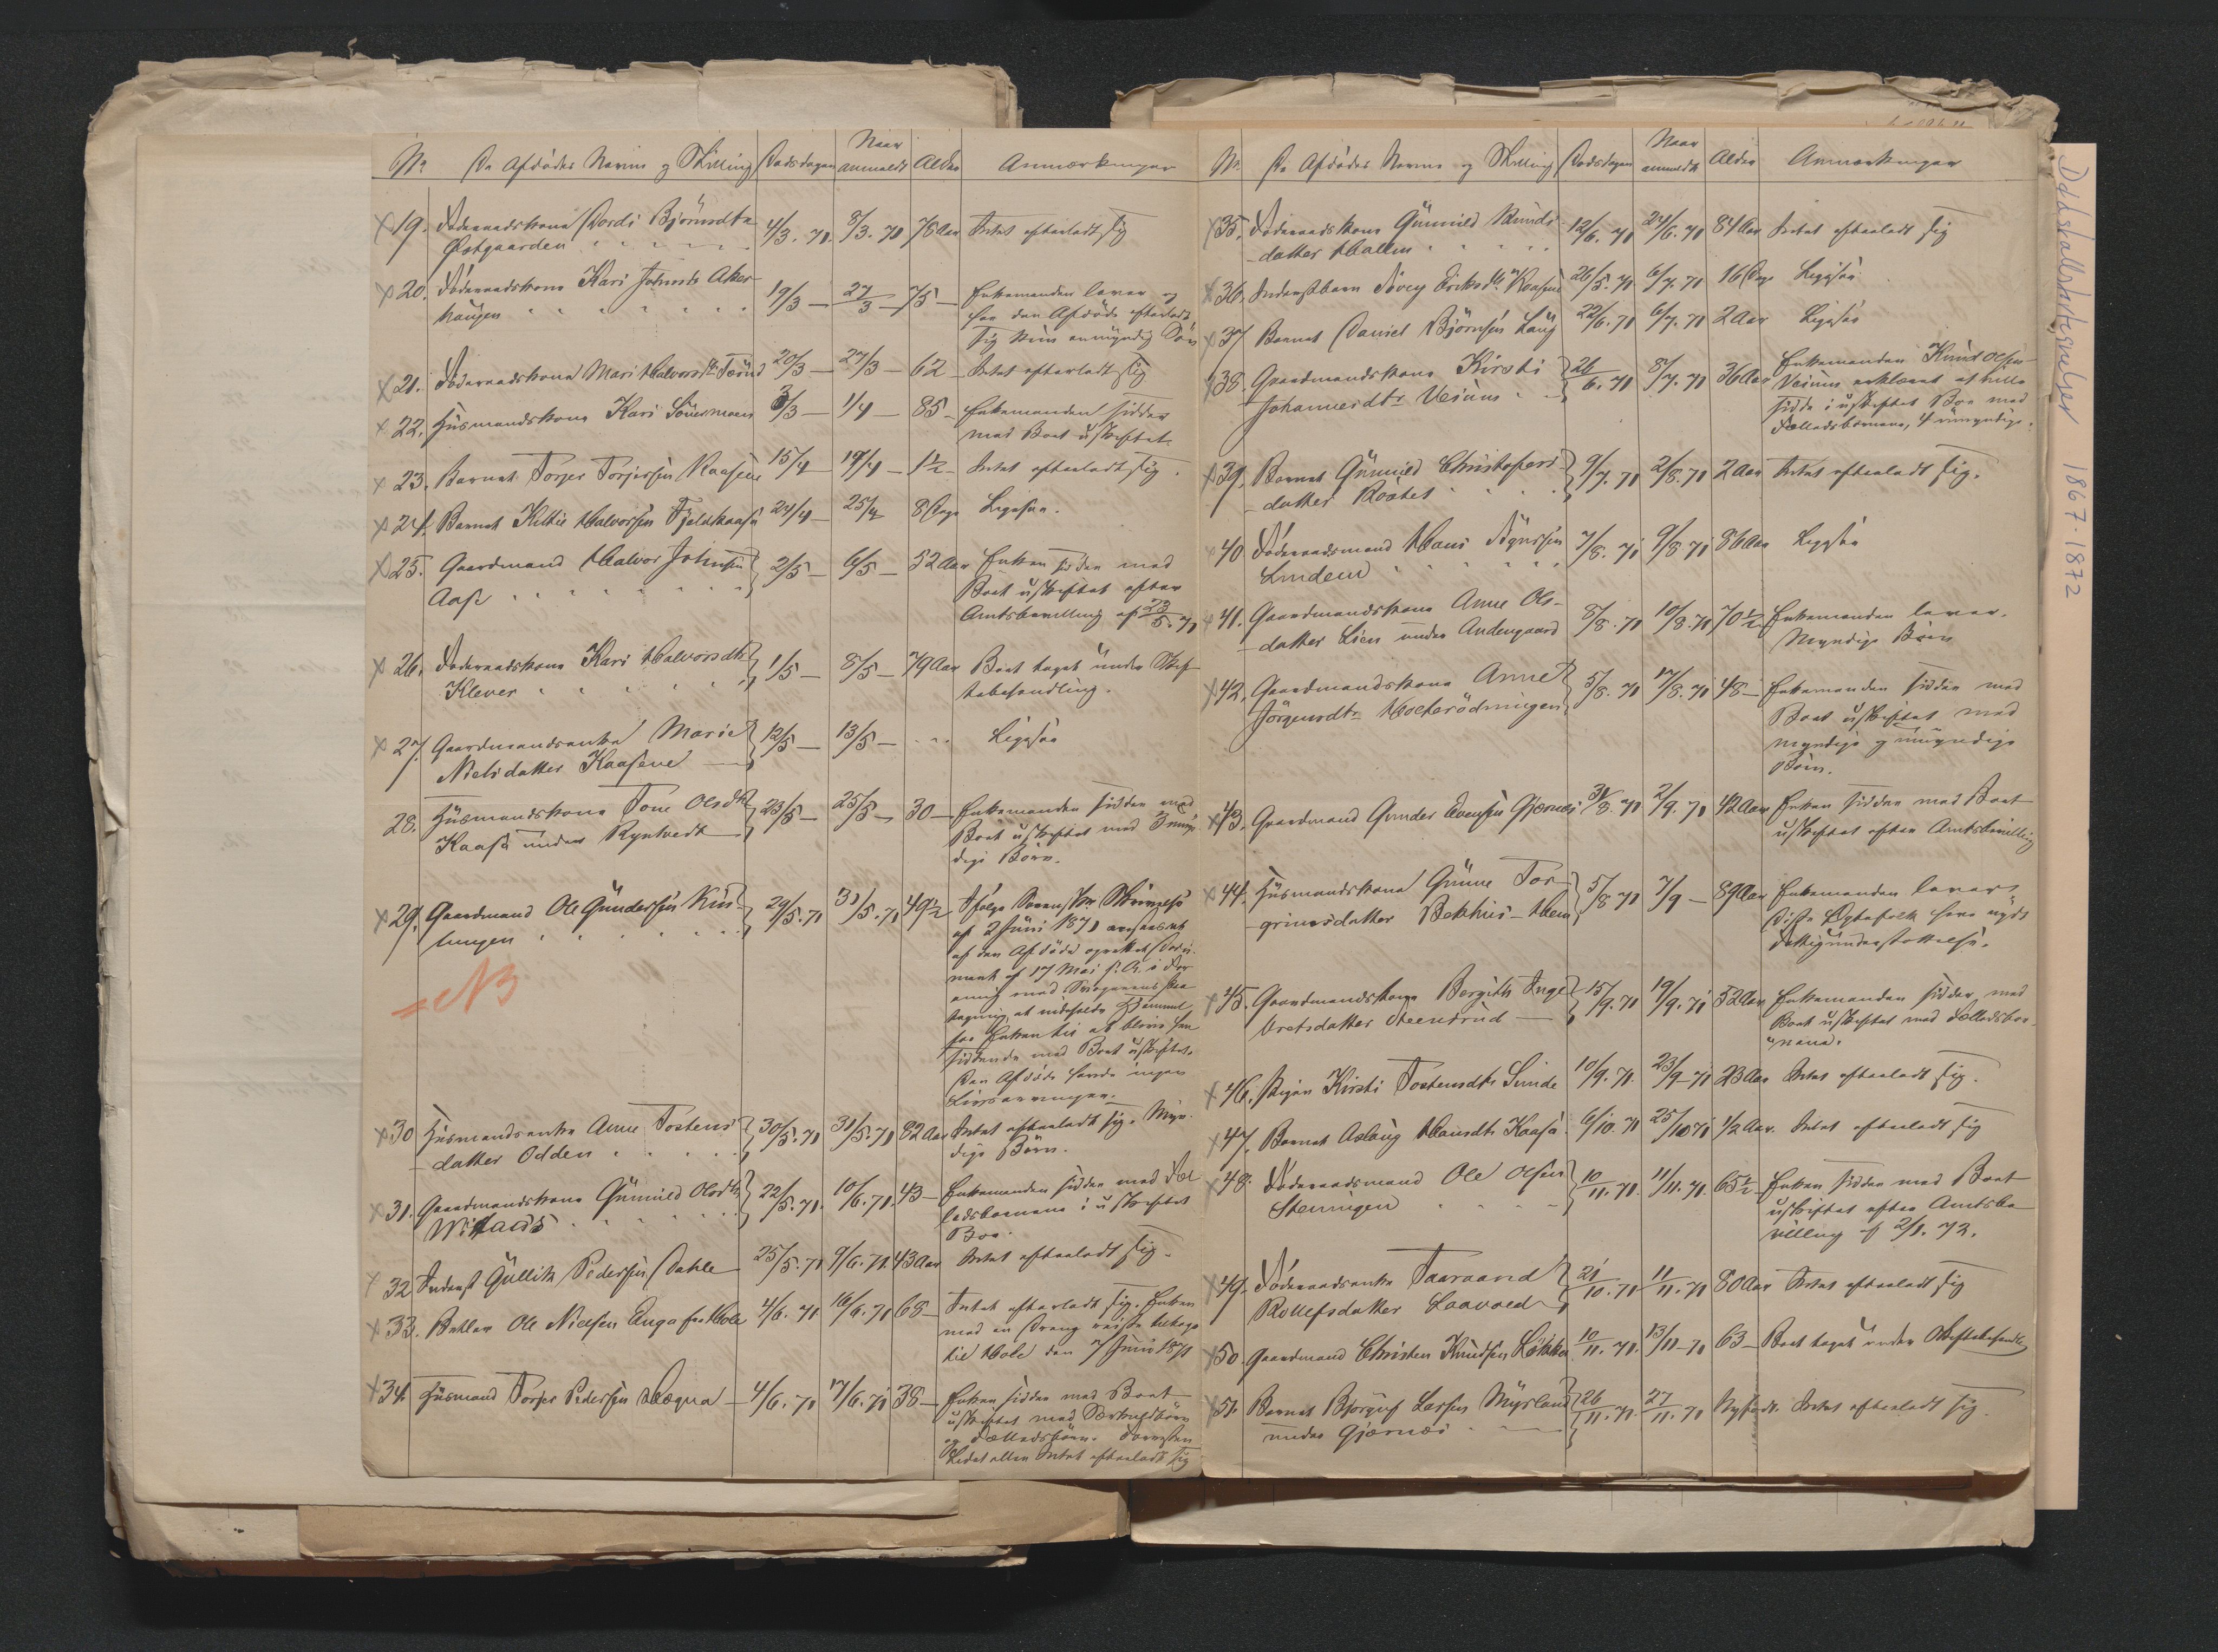 No De Afdødes Navne og Stilling Dødsdagen Naar anmeldt Alder Anmærkninger
19. Føderaadskone Dordi Bjørnsdtr 4/3. 71. 8/3. 71 78 Aar Intet efterladt sig
Østgaarden
20. Føderaadskone Kari Johnsdr Aker- 19/3 — 27/3 — 75 — Enkemanden lever og
haugen
har den Afdøde efterladt
sig
21. Føderaadskone Mari Halvorsdtr 20/3 — 27/3 — 62 — Intet efterladt sig
22. Husmandskone Kari 3/3 — 1/4 — 85 — Enkemanden sidder
med Boet uskiftet
23. Barnet Torjer Torjersen Kaasene 15/4 — 19/4 — 1½ — Intet efterladt sig.
24. Barnet Kittil Halvorsen Fjeldkaasa 24/4 — 25/4 8 Dage Ligesaa.
25. Gaardmand Halvor Johnsen 2/5 — 6/5 — 52 Aar Enken sidder med
Aase
Boet uskiftet efter
Amtsbevilling af 23/5. 71
26. Føderaadskone Kari Halvorsdtr 1/5 — 8/5 — 79 Aar Boet taget under Skif-
Klever
tebehandling.
27. Gaardmandsenke Marie 12/5 — 13/5 — Ligesaa
Nielsdatter Kaasene
28. Husmandskone Tone Olsdtr 23/5 — 25/5 — 30 — Enkemanden sidder med
Kaasa under Ryntvedt
Boet uskiftet med 3 umyn-
dige Børn.
29. Gaardmand Ole Gundersen 29/5. 71 31/5. 71 49½ Ifølge
af 2 Juni 1871
af den Afdøde oprettet Docu-
ment af 17 Mai
for Enken til at blive hen-
siddende med Boet uskiftet.
Den Afdøde havde ingen
Livsarvinger.
NB
30 Husmandsenke Anne Tostens- 30/5. 71 31/5. 71 82 Aar Intet efterladt sig. Myn-
datter Odden
dige Børn.
31. Gaardmandskone Gunnild Olsdtr 22/5. 71. 10/6. 71. 43 — Enkemanden sidder med Fæl-
ledsbørnene i uskiftet
Boe.
32 Inderst Gullik Pedersen Dahle 25/5. 71 9/6. 71. 43 Aar Intet efterladt sig.
33. Ole Nielsen Enga fra Hole 4/6. 71 16/6. 71 68 — Intet efterladt sig. Enken
med en Dreng reiste tilbage
til Hole den 7 Juni 1871
34. Husmand Torjer Pedersen Hægna — 4/6. 71 17/6. 71 38 — Enken sidder med Boet
uskiftet med Særkuldbørn
og Fælledsbørn. Forresten
Lidet eller Intet efterladt sig
No De Afdødes Navne og Stilling Dødsdagen Naar anmeldt Alder Anmærkninger
35. Føderaadskone Gunnild Knuds- 12/6. 71 24/6. 71 84 Aar Intet efterladt sig
datter Hallen
36. Inderstbarn Eriksdtr Kaasene 26/5. 71 6/7. 71 16 Dage Ligesaa
37 Barnet Daniel Bjørnsen 22/6. 71 6/7. 71 2 Aar Ligesaa
38. Gaardmandskone Kirsti 26/6. 71 8/7. 71 36 Aar Enkemanden Knud Olsen
Johannesdtr Vesium
Vesium erklæret at ville
sidde i uskiftet Boe med
Fælledsbørnene, 4 umyndige.
39. Barnet Gunnild Christofers- 9/7. 71 2/8. 71 2 Aar Intet efterladt sig.
datter
40 Føderaadsmand Hans 7/8. 71 9/8 71 86 Aar Ligesaa
Lindem
41. Gaardmandskone Anne Ols- 8/8. 71 10/8. 71 70½ Enkemanden lever.
datter Lien under Andengaard
Myndige Børn
42. Gaardmandskone Anne 5/8. 71 17/8. 71 48 — Enkemanden sidder med
Jörgensdtr Holterödningen
Boet uskiftet med
myndige og umyndige
Børn.
43. Gaardmand Gunder Evensen Gjernæs 31/8. 71 2/9. 71 42 Aar Enken sidder med Boet
uskiftet efter Amtsbevilling
44. Husmandskone Gunne Tor- 5/8 71 7/9 — 89 Aar Enkemanden lever.
grimsdatter Bekhus-Hem
Disse Egtefolk have nydt
Fattigunderstøttelse.
45. Gaardmandskone Bergith Inge- 15/9. 71 19/9. 71 52 Aar Enkemanden sidder med
bretsdatter Steensrud
Boet uskiftet med Fælledsbør-
nene.
46. Pigen Kirsti Tostensdtr Sunde 10/9. 71. 23/9 71 23 Aar Intet efterladt sig.
47. Barnet Aslaug Hansdtr Kaasa 6/10. 71 25/10 71 1/2 Aar. Intet efterladt sig
48. Føderaadsmand Ole Olsen 10/11. 71. 11/11. 71. 65½ Enken sidder med Boet
Steningen
uskiftet efter Amtsbe-
villing af 2/1. 72.
49. Føderaadsenke Taaraand 21/10. 71 11/11. 71 80 Aar Intet efterladt sig
Rollefsdatter Laavoed
50. Gaardmand Christen Knudsen 10/11. 71. 13/11 71 63 — Boet taget under Skiftebehandling
51. Barnet Bjørgulf Larsen Mysland 26/11. 71. 27/11. 71 Nyfødt. Intet efterladt sig
under Gjernæs
Dødsfallsfortegnelser 1867-1872